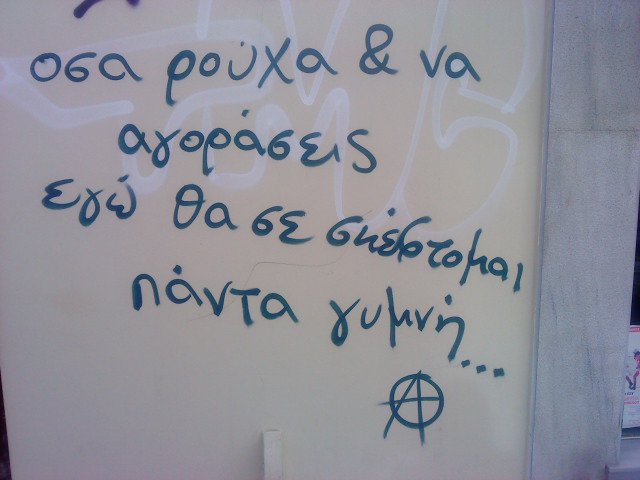 οσα ρούχα & να
αγοράσεις
εγώ θα σε σκέφτομαι
πάντα γυμνή...